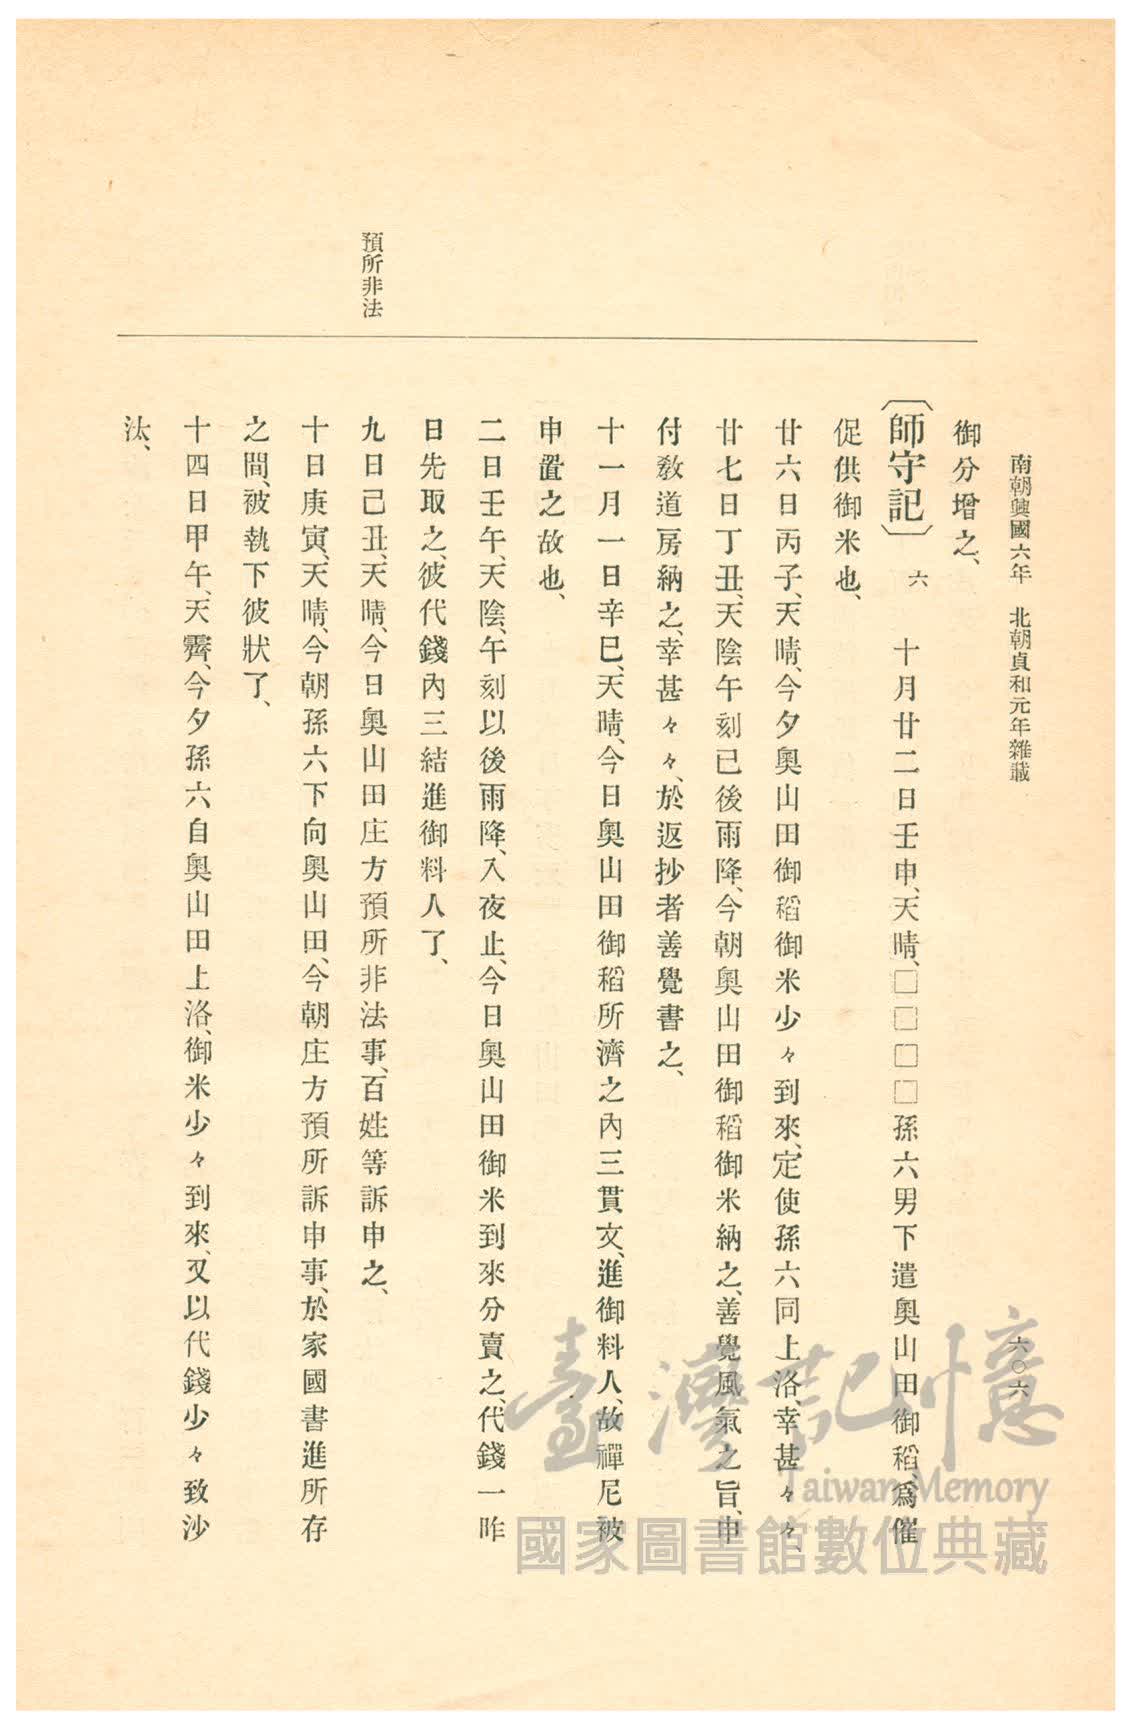 南朝興國六年　北朝貞和元年雜載
六〇六
御分增之、
〔師守記〕六　十月廿二日壬申、天晴、□□□□孫六男下遣奧山田御稻、爲催
促供御米也、
廿六日丙子、天晴、今夕奧山田御稻御米少々到來、定使孫六同上洛幸甚々々、
廿七日丁丑、天陰午刻已後雨降、今朝奧山田御稻御米納之、善覺風氣之旨、申
付敎道房納之、幸甚々々、於返抄者善覺書之、
十一月一日辛巳、天晴、今日奧山田御稻所濟之內三貫文、進御料人、故禪尼被
申置之故也、
二日壬午、天陰、午刻以後雨降、入夜止、今日奧山田御米到來分賣之、代錢一昨
日先取之、彼代錢內三結進御料人了、
預所非法
九日己丑、天晴、今日奧山田庄方預所非法事、百姓等訴申之、
十日庚寅、天晴、今朝孫六下向奧山田、今朝庄方預所訴申事、於家國書進所存
之間、被執下彼狀了、
十四日甲午、天霽、今夕孫六自奧山田上洛、御米少々到來、又以代錢少々致沙
汰、
臺灣記憶
Taiwan Memory
國家圖書館數位典藏